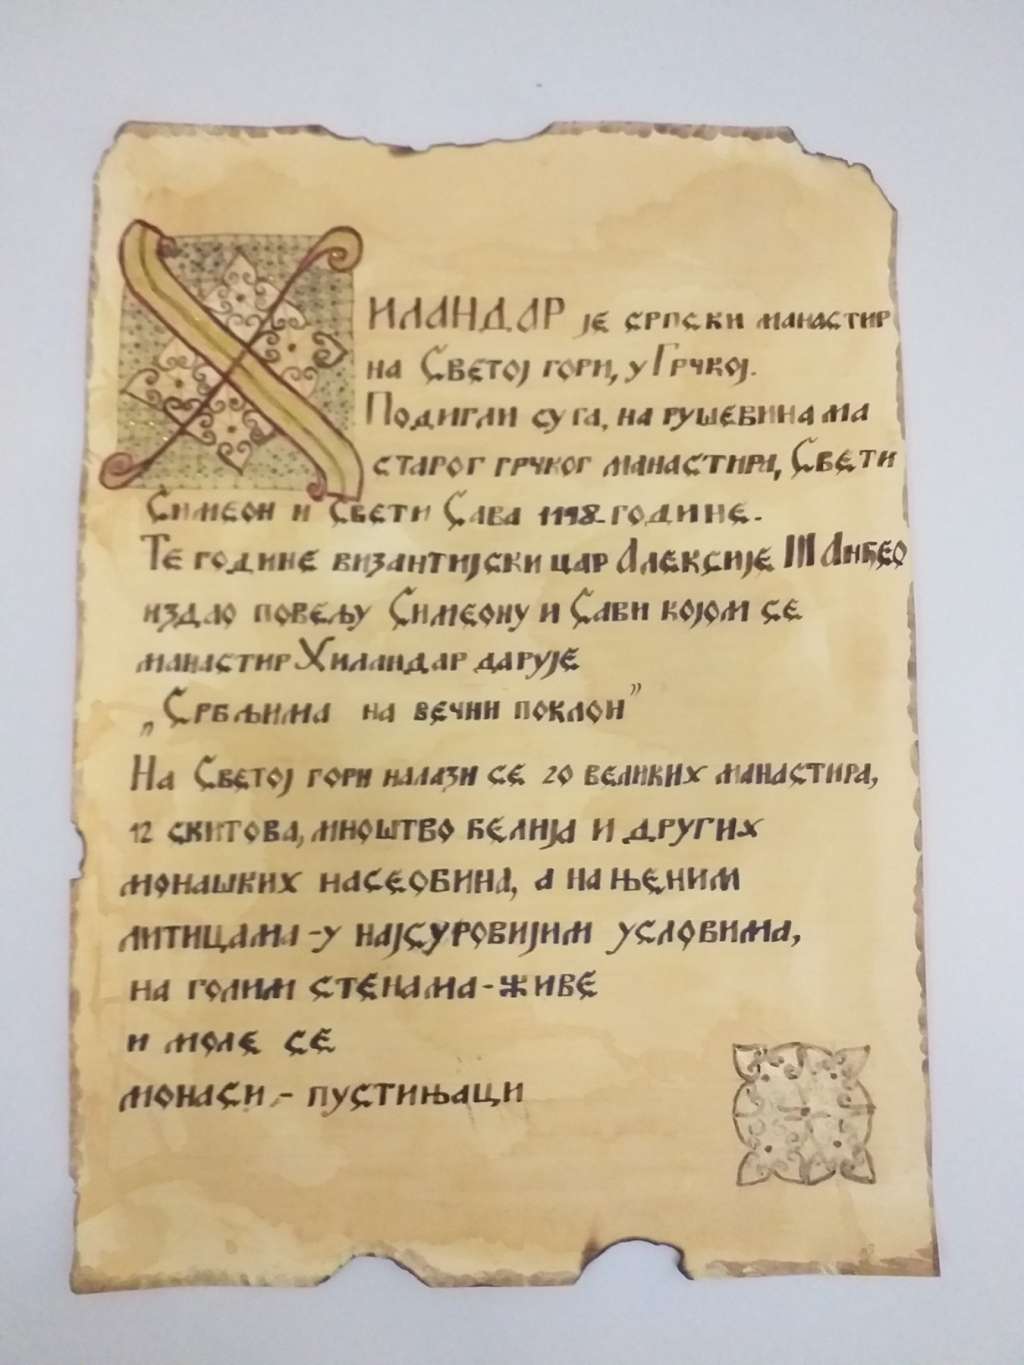 ХИЛАНДАР је српски манастир
на Светој гори, у Грчкој.
Подигли су га, на рушевинама
старог грчког манастира, Свети
Симеон и Свети Сава 1198. године.
Те године византијски цар Алексије III Анђео
издао повељу Симеону и Сави којом се
манастир Хиландар дарује
„Србљима на вечни поклон”
На Светој гори налази се 20 великих манастира,
12 скитова, мноштво ћелија и других
монашких насеобина, а на њеним
литицама - у најсуровијим условима,
на голим стенама - живе
и моле се
монаси - пустињаци